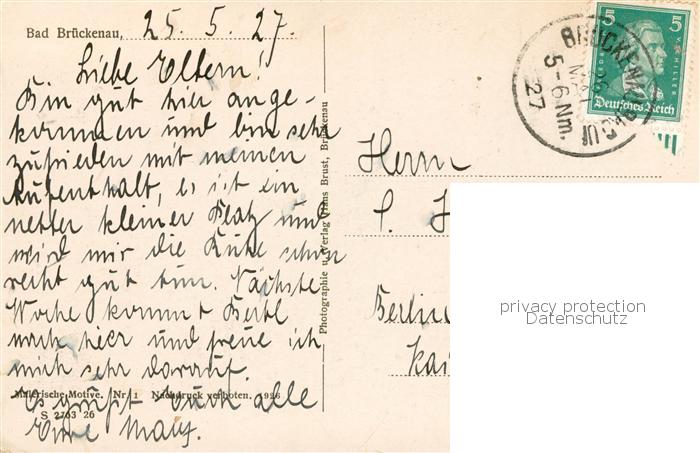 Bad Brückenau, 25. 5. 27.
Liebe Eltern!
Bin gut hier ange-
kommen und bin sehr
zufrieden mit meinen
Aufenthalt, es ist ein
netter kleiner Platz und
wird mir die Ruhe schon
recht gut tun. Nächste
Woche kommt
nach hier und freue ich
mich sehr darauf.
Es grüßt Euch alle
Eure
Malerische Motive. Nr. 1 Nachdruck verboten. 1926
S 2763 26
Photographie u. Verlag Hans Brust, Brückenau
BRÜCKENAU
5-6 Nm.
27
5 5
Deutsches Reich
Herrn
Berlin
Kai
privacy protection
Datenschutz